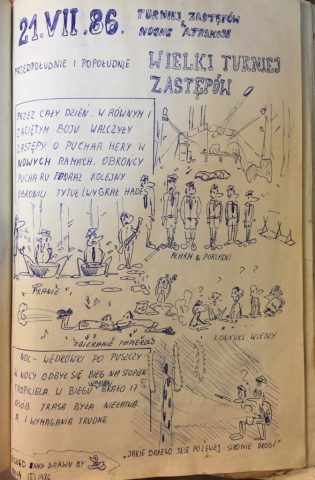 21.VII.86. TURNIEJ ZASTĘPÓW
& NOCNE ATRAKCJE
PRZEDPOŁUDNIE I POPOŁUDNIE
WIELKI TURNIEJ
ZASTĘPÓW
PRZEZ CAŁY DZIEŃ. W RÓWNYM I
ZACIĘTYM BOJU WALCZYŁY
ZASTĘPY O PUCHAR HERY W
NOWYCH RAMACH. OBROŃCY
PUCHARU PO RAZ KOLEJNY
OBRONILI TYTUŁ (WYGRAŁ HADES
ALARM & PORZĄDKI
PRANIE
ZBIERANIE PAPIERÓW
KONKURS WIEDZY
NOC - WĘDRÓWKI PO PUSZCZY
W NOCY ODBYŁ SIĘ BIEG NA STOPIEŃ
TROPICIELA W BIEGU BRAŁO 17
OSÓB TRASA BYŁA NIEŁATWA
A I WYMAGANIA TRUDNE
"JAKIE DRZEWO JEST PO LEWEJ STRONIE DROGI"
AND DRAWN BY
© 1986